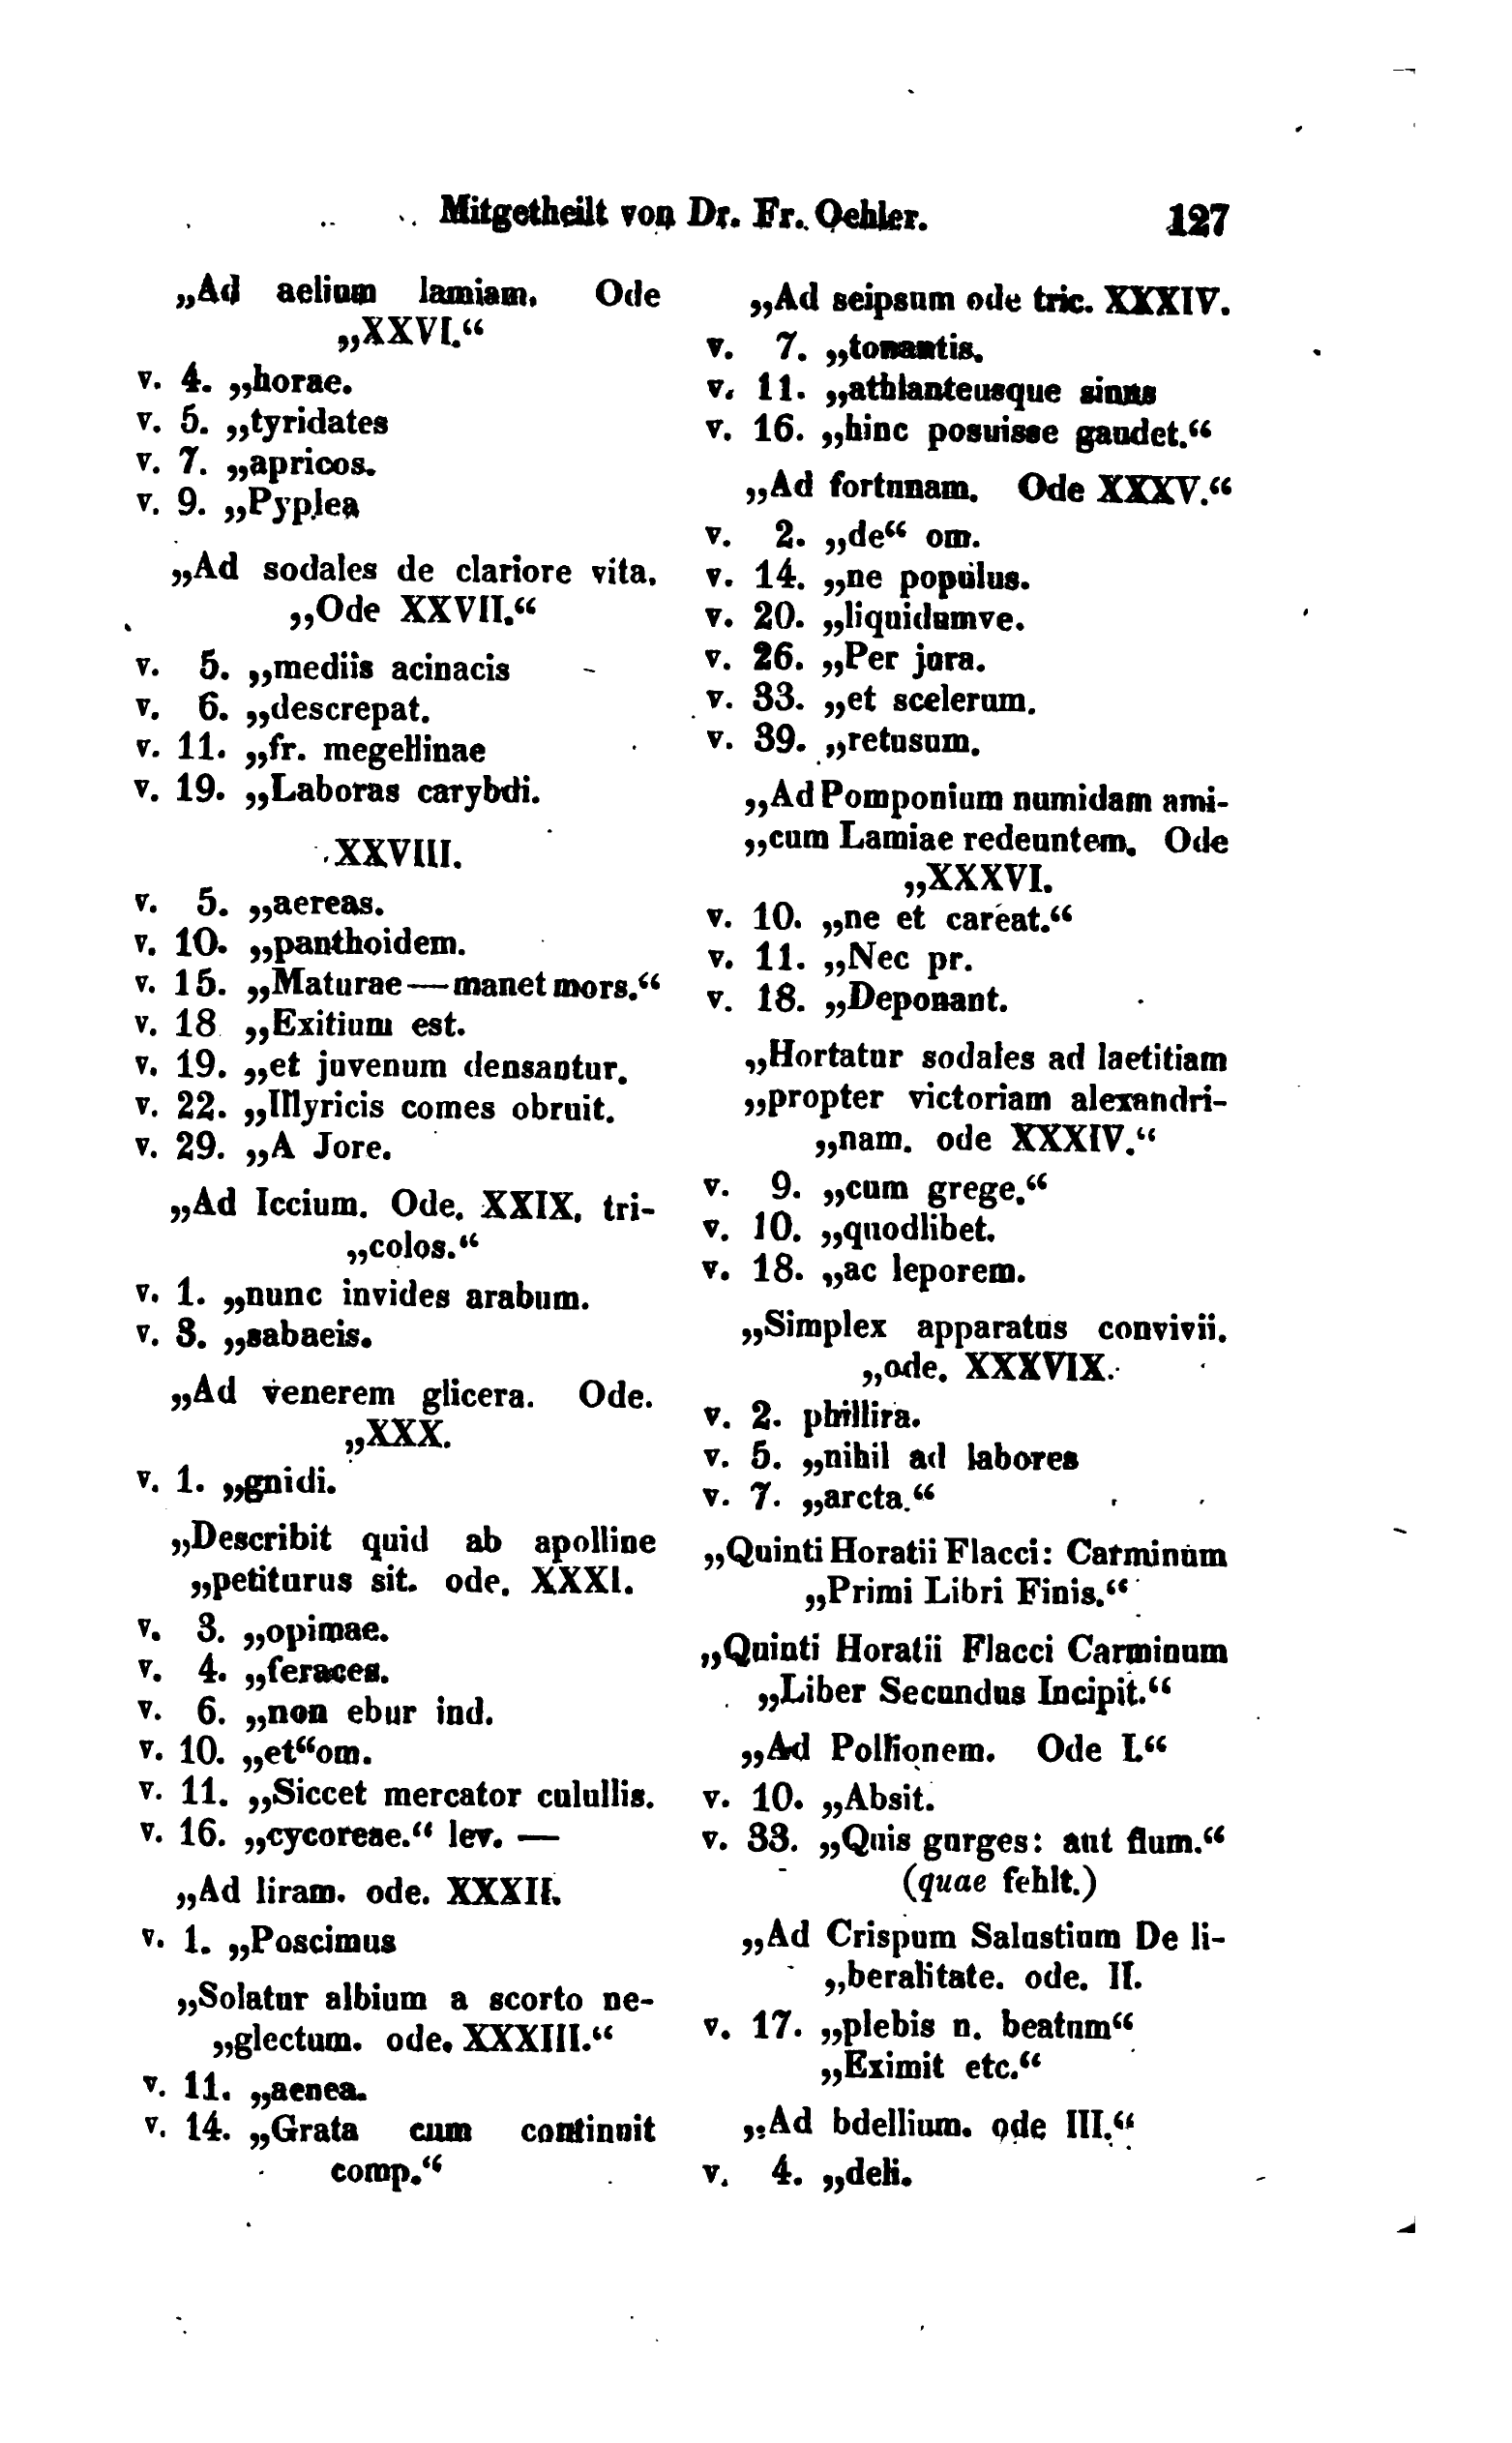 Mitgetheilt von Dr. Fr. Oehler. 127
„Ad aelium lamiam. Ode
„XXVI.“
v. 4. „horae.
v. 5. „tyridates
v. 7. „apricos.
v. 9. „Pyplea
„Ad sodales de clariore vita.
„Ode XXVII.“
v. 5. „mediis acinacis
v. 6. „descrepat.
v. 11. „fr. megellinae
v. 19. „Laboras carybdi.
XXVIII.
v. 5. „aereas.
v. 10. „panthoidem.
v. 15. „Maturae—manet mors.“
v. 18 „Exitium est.
v. 19. „et juvenum densantur.
v. 22. „Illyricis comes obruit.
v. 29. „A Jore.
„Ad Iccium. Ode. XXIX. tri-
„colos.“
v. 1. „nunc invides arabum.
v. 3. „sabaeis.
„Ad venerem glicera. Ode.
„XXX.
v. 1. „gnidi.
„Describit quid ab apolline
„petiturus sit. ode. XXXI.
v. 3. „opimae.
v. 4. „feraces.
v. 6. „non ebur ind.
v. 10. „et“ om.
v. 11. „Siccet mercator culullis.
v. 16. „cycoreae.“ lev. —
„Ad liram. ode. XXXII.
v. 1. „Poscimus
„Solatur albium a scorto ne-
„glectum. ode. XXXIII.“
v. 11. „aenea.
v. 14. „Grata cum continuit
comp.“
„Ad seipsum ode tric. XXXIV.
v. 7. „tonantis.
v. 11. „athlanteusque sinus
v. 16. „hinc posuisse gaudet.“
„Ad fortunam. Ode XXXV.“
v. 2. „de“ om.
v. 14. „ne populus.
v. 20. „liquidumve.
v. 26. „Per jura.
v. 33. „et scelerum.
v. 39. „retusum.
„Ad Pomponium numidam ami-
„cum Lamiae redeuntem. Ode
„XXXVI.
v. 10. „ne et careat.“
v. 11. „Nec pr.
v. 18. „Deponant.
„Hortatur sodales ad laetitiam
„propter victoriam alexandri-
„nam. ode XXXIV.“
v. 9. „cum grege.“
v. 10. „quodlibet.
v. 18. „ac leporem.
„Simplex apparatus convivii.
„ode. XXXVIX.
v. 2. phillira.
v. 5. „nihil ad labores
v. 7. „arcta.“
„Quinti Horatii Flacci: Carminum
„Primi Libri Finis.“
„Quinti Horatii Flacci Carminum
„Liber Secundus Incipit.“
„Ad Pollionem. Ode I.“
v. 10. „Absit.
v. 33. „Quis gurges: aut flum.“
(quae fehlt.)
„Ad Crispum Salustium De li-
„beralitate. ode. II.
v. 17. „plebis n. beatum“
„Eximit etc.“
„Ad bdellium. ode III.“
v. 4. „deli.